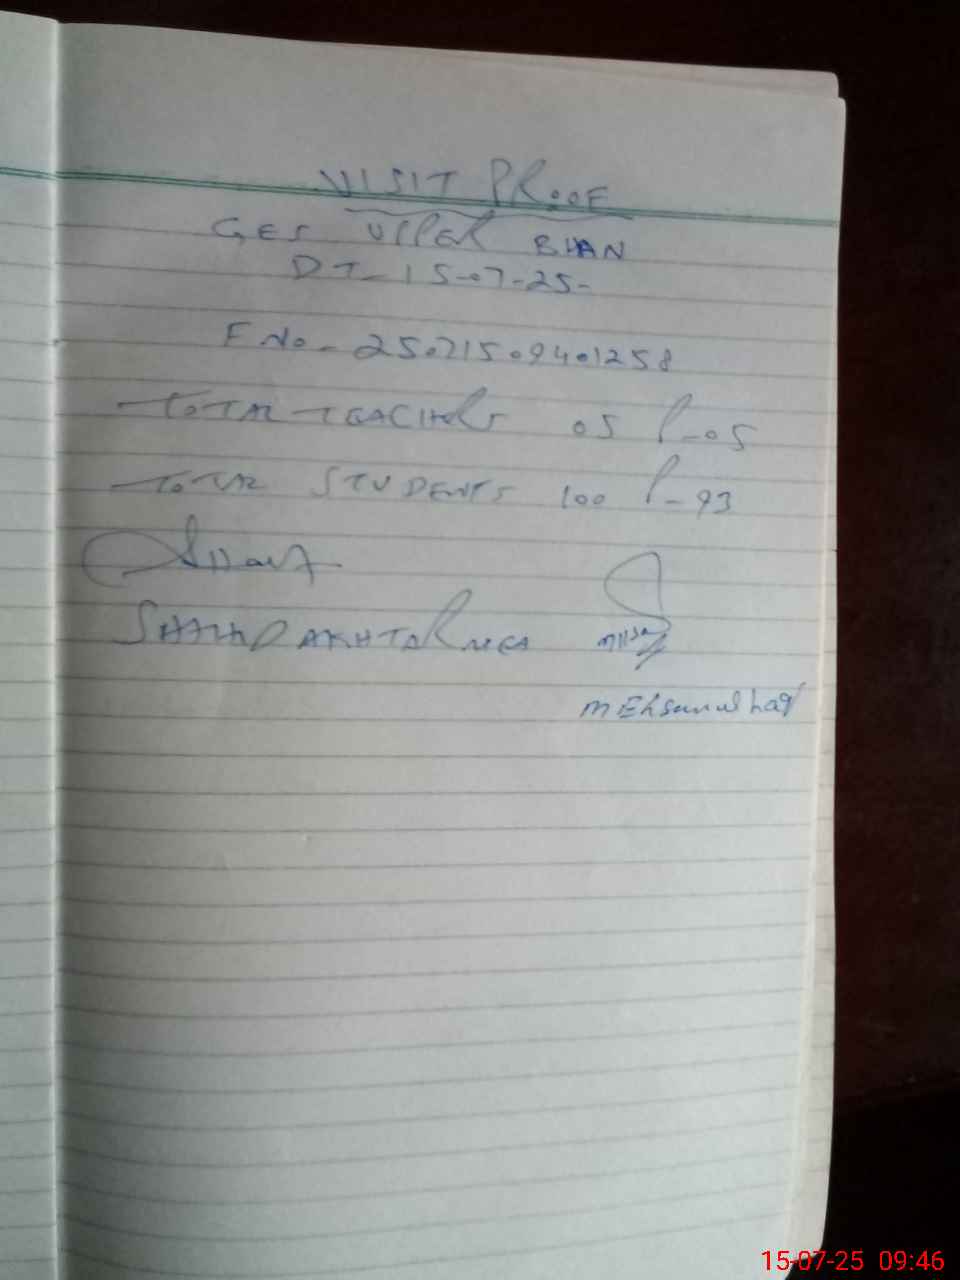 VISIT PROOF
GES UPPER BHAN
DT-15-07-25-
F No- 25071509401258
TOTAL TEACHERS 05 P-05
TOTAL STUDENTS 100 P-93
AKHTAR MEA
M Ehsan ul haq
15-07-25 09:46